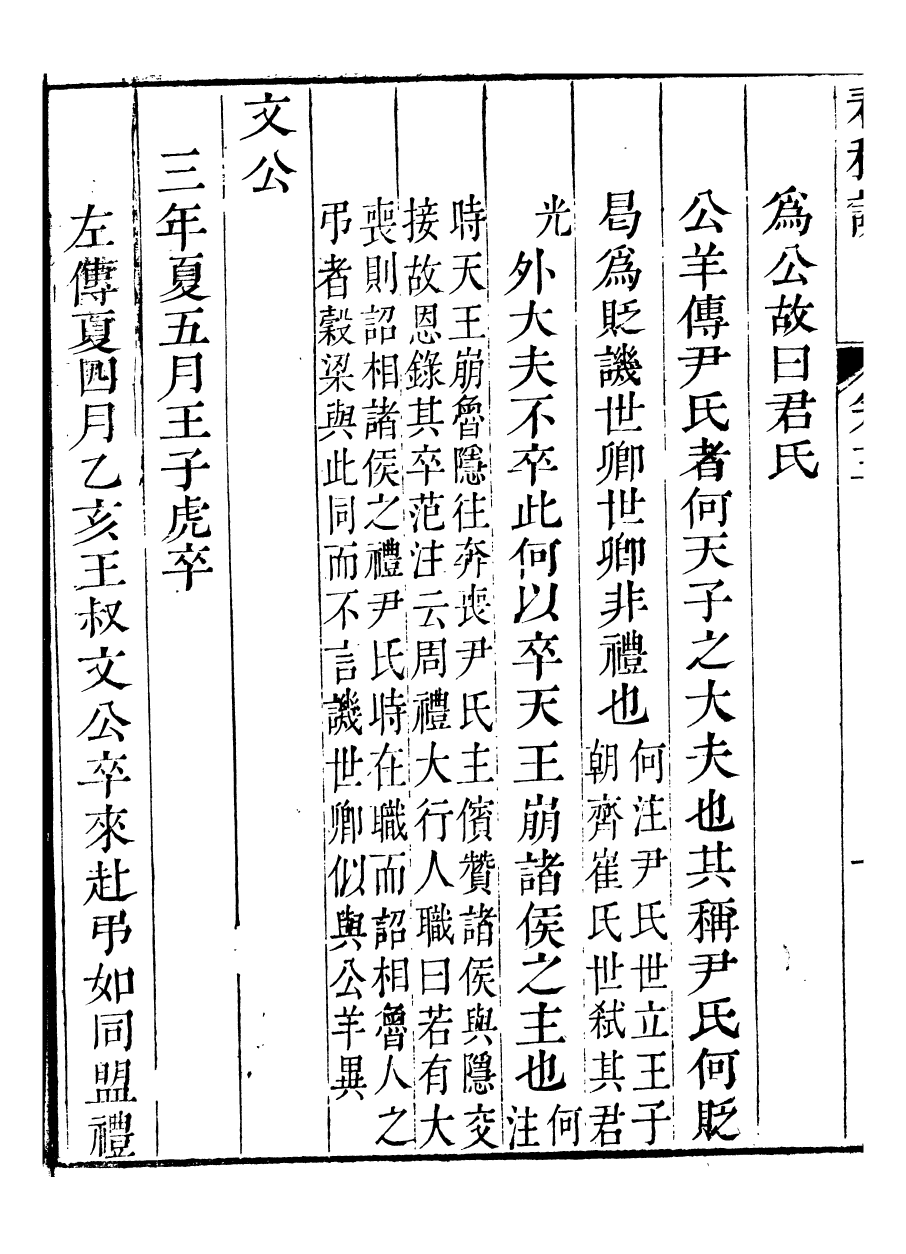 為公故曰君氏
公羊傳尹氏者何天子之大夫也其稱尹氏何貶
曷為貶譏世卿世卿非禮也何注尹氏世立王子
朝齊崔氏世弒其君
光外大夫不卒此何以卒天王崩諸侯之主也何
注
時天王崩魯隱往奔喪尹氏主儐贊諸侯與隱交
接故恩錄其卒范注云周禮大行人職曰若有大
喪則詔相諸侯之禮尹氏時在職而詔相魯人之
弔者穀梁與此同而不言譏世卿似與公羊異
文公
三年夏五月王子虎卒
左傳夏四月乙亥王叔文公卒來赴弔如同盟禮